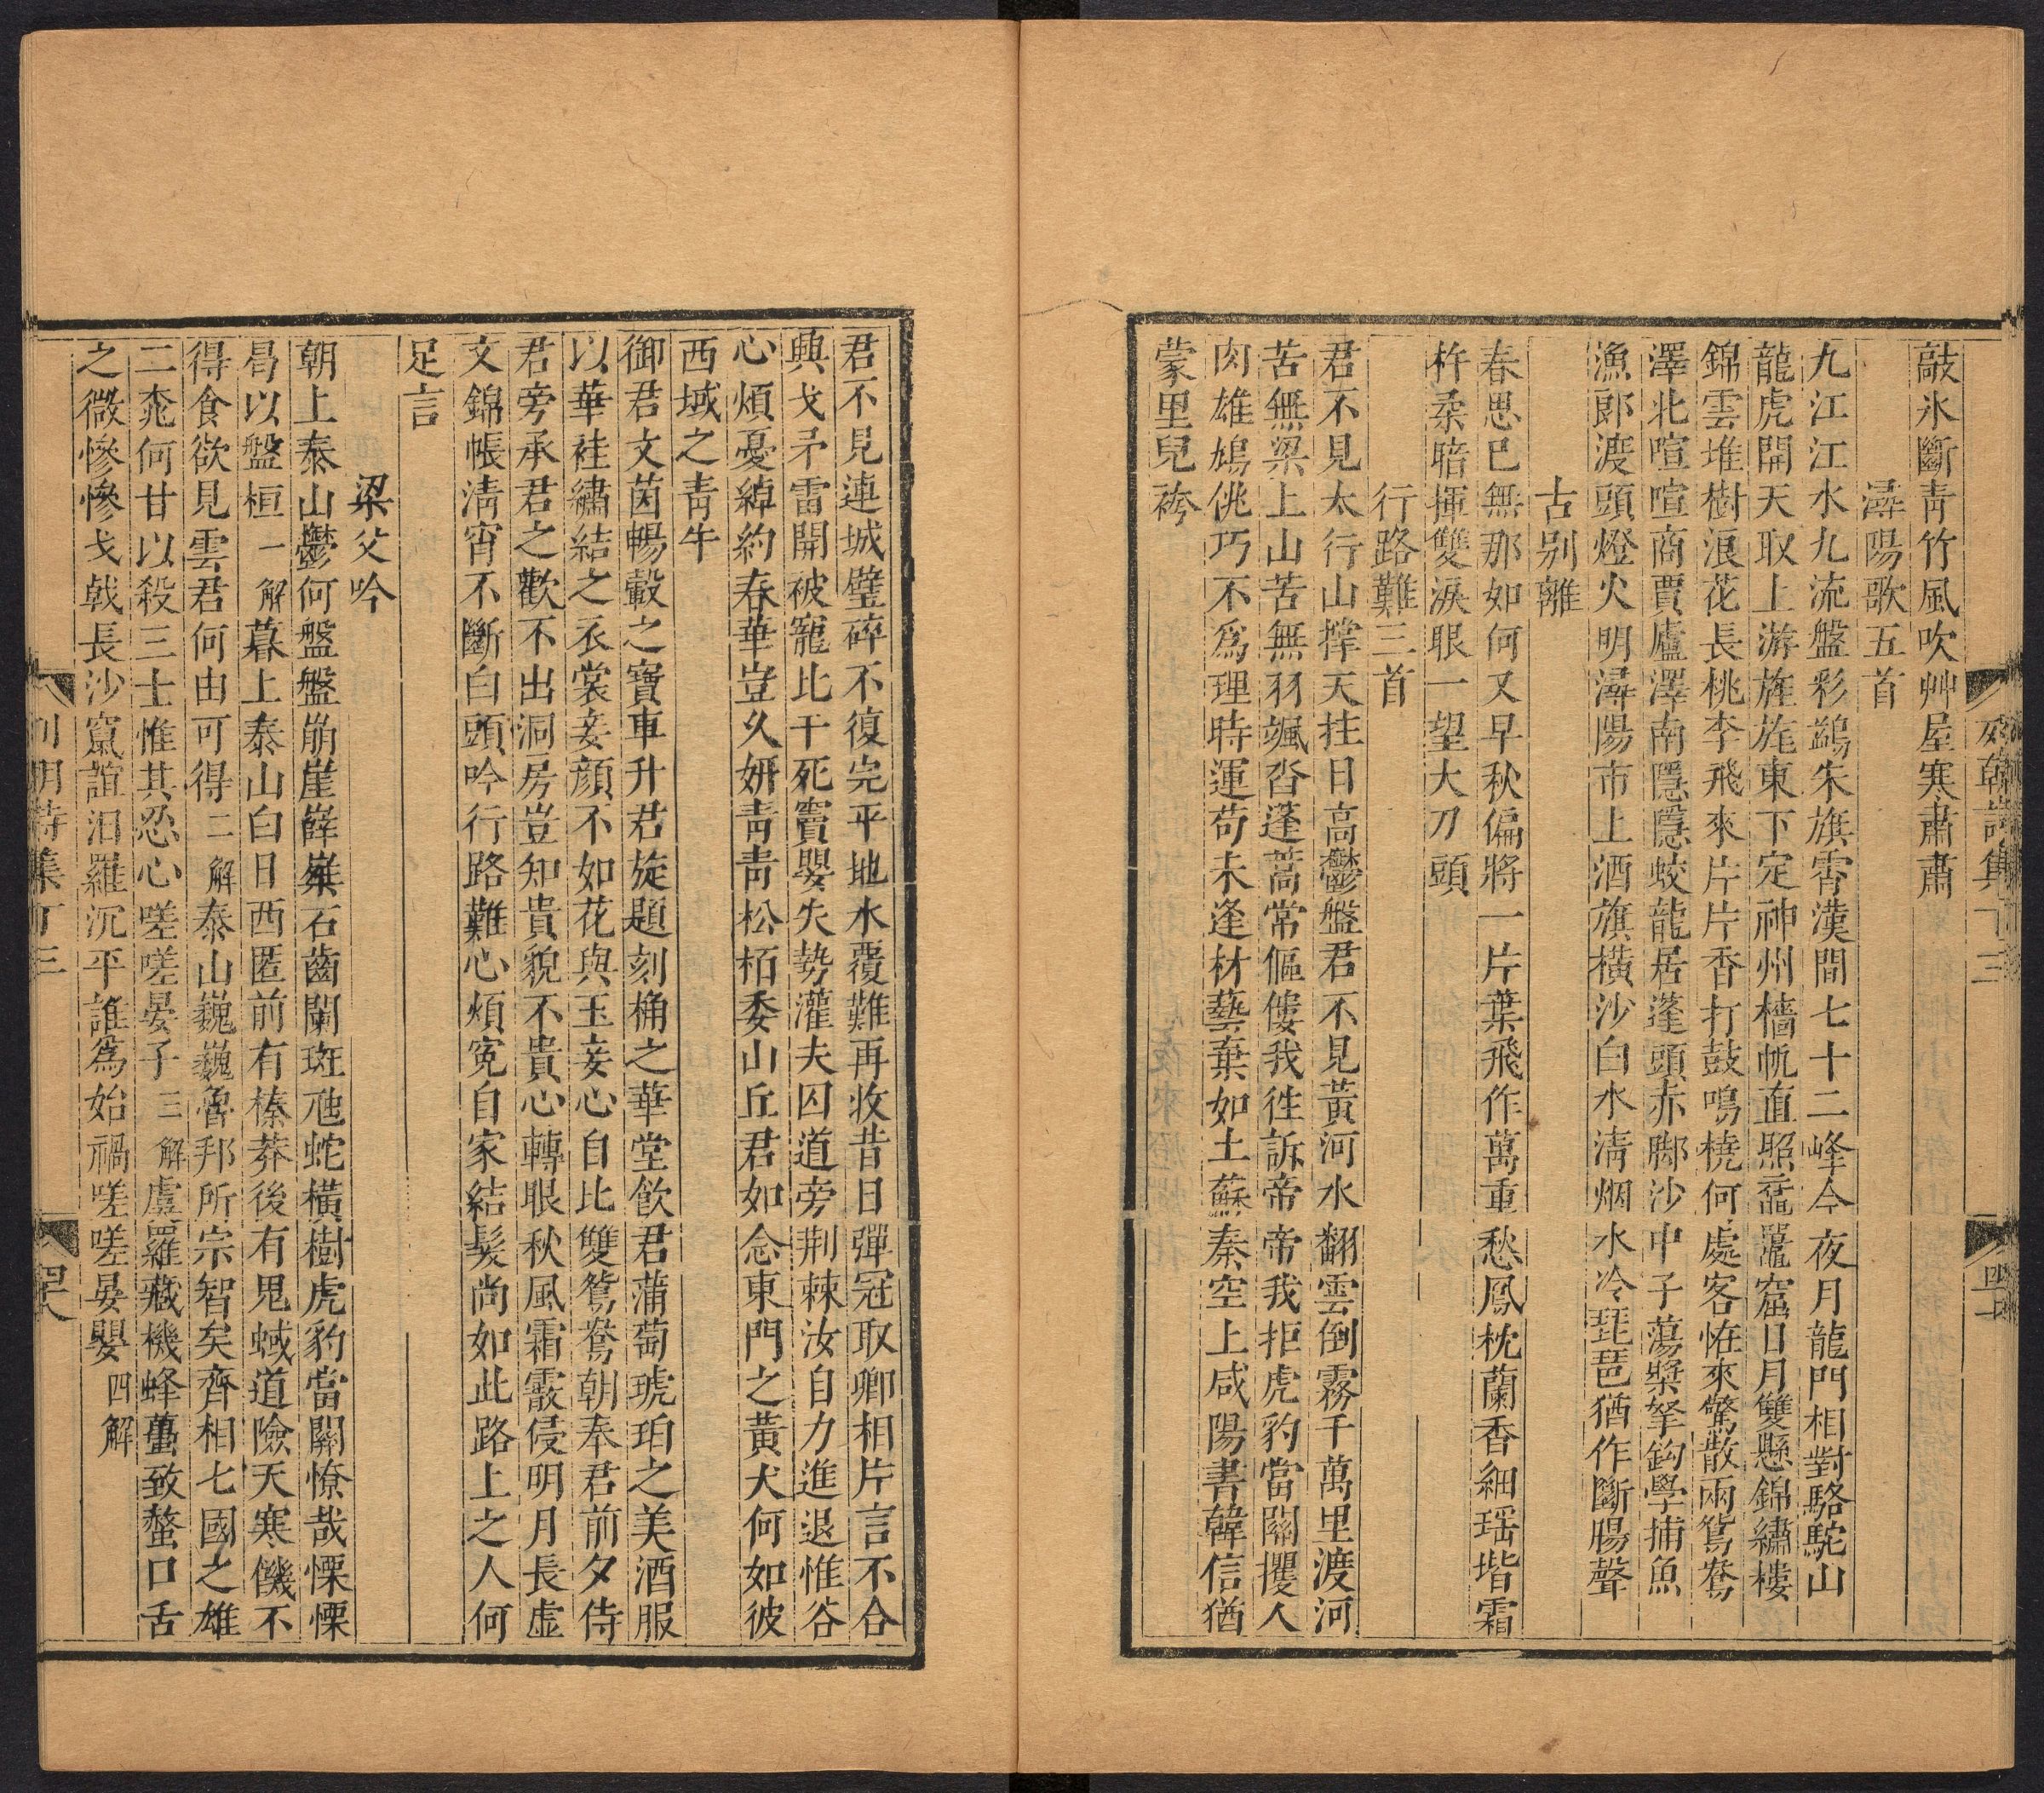 敲氷斷靑竹風吹艸屋寒肅肅
潯陽歌五首
九江江水九流盤彩鷁朱旗霄漢間七十二峰今夜月龍門相對駱駝山
龍虎開天取上游旌旄東下定神州檣帆直照黿鼉窟日月雙懸錦繡樓
錦雲堆樹浪花長桃李飛來片片香打鼓鳴橈何處客恠來驚散兩鴛鴦
澤北喧喧商賈廬澤南隱隱蛟龍居蓬頭赤脚沙中子蕩槳拏鈎學捕魚
漁郎渡頭燈火明潯陽市上酒旗橫沙白水淸烟水冷琵琶猶作斷腸聲
古别離
春思已無那如何又早秋偏將一片葉飛作萬重愁鳳枕蘭香細瑶堦霜
杵柔暗揮雙淚眼一望大刀頭
行路難三首
君不見太行山撑天拄日高鬱盤君不見黃河水翻雲倒霧千萬里渡河
苦無梁上山苦無羽颯沓蓬蒿常傴僂我徃訴帝帝我拒虎豹當關攫人
肉雄鳩佻巧不爲理時運苟未逢材藝棄如土蘇秦空上咸陽書韓信猶
蒙里兒袴
君不見連城璧碎不復完平地水覆難再收昔日彈冠取卿相片言不合
興戈矛雷開被寵比干死竇嬰失勢灌夫囚道旁荆棘汝自力進退惟谷
心煩憂綽約春華豈久姸靑靑松栢委山丘君如念東門之黃犬何如彼
西域之靑牛
御君文茵暢轂之寶車升君旋題刻桷之華堂飮君蒲萄琥珀之美酒服
以華袿繡結之衣裳妾顔不如花與玉妾心自比雙鴛鴦朝奉君前夕侍
君旁承君之歡不出洞房豈知貴貌不貴心轉眼秋風霜霰侵明月長虛
文錦帳淸宵不斷白頭吟行路難心煩寃自家結髮尚如此路上之人何
足言
梁父吟
朝上泰山鬱何盤盤崩崖嶭嶪石齒闌斑虺蛇橫樹虎豹當關憭哉慄慄
曷以盤桓一解暮上泰山白日西匿前有榛莽後有鬼蜮道險天寒饑不
得食欲見雲君何由可得二解泰山巍巍魯邦所宗智矣齊相七國之雄
二桃何甘以殺三士惟其忍心嗟嗟晏子三解虛羅藏機蜂蠆致螫口舌
之微慘慘戈戟長沙竄誼汨羅沉平誰為始禍嗟嗟晏嬰四解